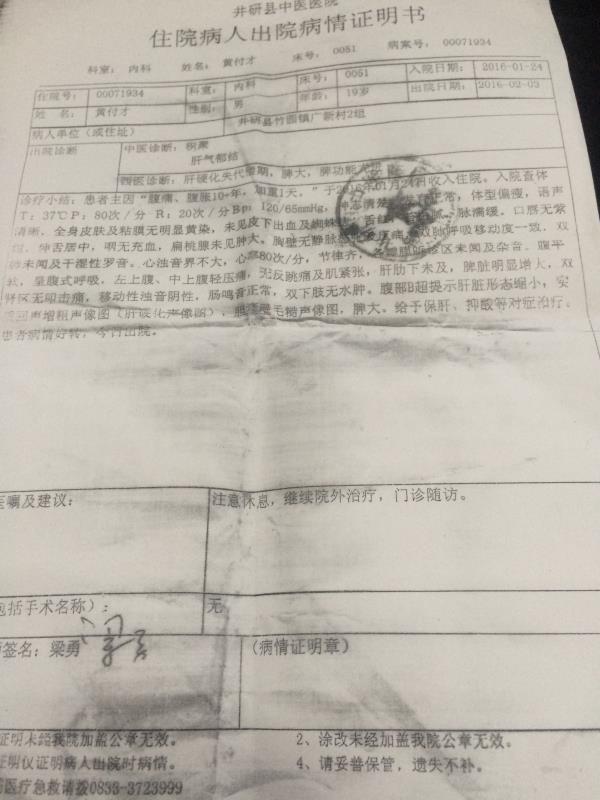 井研县中医医院
住院病人出院病情证明书
科室: 内科 姓名: 黄付才 床号: 0051 病案号: 00071934
住院号: 00071934 科室: 内科 床号: 0051 入院日期: 2016-01-24
姓 名: 黄付才 性别: 男 年龄: 19岁 出院日期: 2016-02-03
病人单位(或住址) 井研县竹园镇广新村2组
出院诊断 中医诊断: 积聚
肝气郁结
西医诊断: 肝硬化失代偿期, 脾大, 脾功能
诊疗小结: 患者主因“腹痛、腹胀10+年, 加重1天。”于2016年01月24日收入住院。入院查体
T: 37℃ P: 80次/分 R: 20次/分 Bp: 120/65mmHg, 神志清楚 正常, 体型偏瘦, 语声
清晰, 全身皮肤及粘膜无明显黄染, 未见皮下出血及蜘蛛 舌红 脉濡缓。口唇无紫
伸舌居中, 咽无充血, 扁桃腺未见肿大。胸壁无静脉 压痛 双肺呼吸移动度一致, 双
肺未闻及干湿性罗音。心浊音界不大, 心率80次/分, 节律齐, 各瓣膜听诊区未闻及杂音。腹平
软, 呈腹式呼吸, 左上腹、中上腹轻压痛, 无反跳痛及肌紧张, 肝肋下未及, 脾脏明显增大, 双
肾区无叩击痛, 移动性浊音阴性, 肠鸣音正常, 双下肢无水肿。腹部B超提示肝脏形态缩小, 实
质回声增粗声像图(肝硬化声像图), 胆囊壁毛糙声像图, 脾大。给予保肝、抑酸等对症治疗。
患者病情好转, 今日出院。
医嘱及建议: 注意休息, 继续院外治疗, 门诊随访。
包括手术名称): 无
签名: 梁勇 (病情证明章)
证明未经我院加盖公章无效。 2、涂改未经加盖我院公章无效。
证明仅证明病人出院时病情。 4、请妥善保管, 遗失不补。
医疗急救请拨0833-3723999